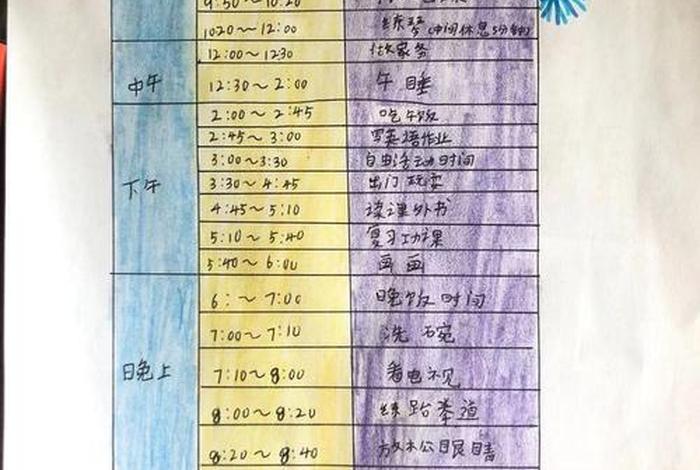 9:50~10:20
1020~12:00 练琴(中间休息5分钟)
12:00~1230 做家务
中午 12:30~2:00 午睡
2:00~2:45 吃午饭
2:45~3:00 写英语作业
3:00~3:30 自由活动时间
下午 3:30~4:45 出门玩耍
4:45~5:10 读课外书
5:10~5:40 复习功课
5:40~6:00 画画
6:~7:00 晚饭时间
7:00~7:10 洗碗
晚上 7:10~8:00 看电视
8:00~8:20 练跆拳道
8:20~8:40 放松眼睛